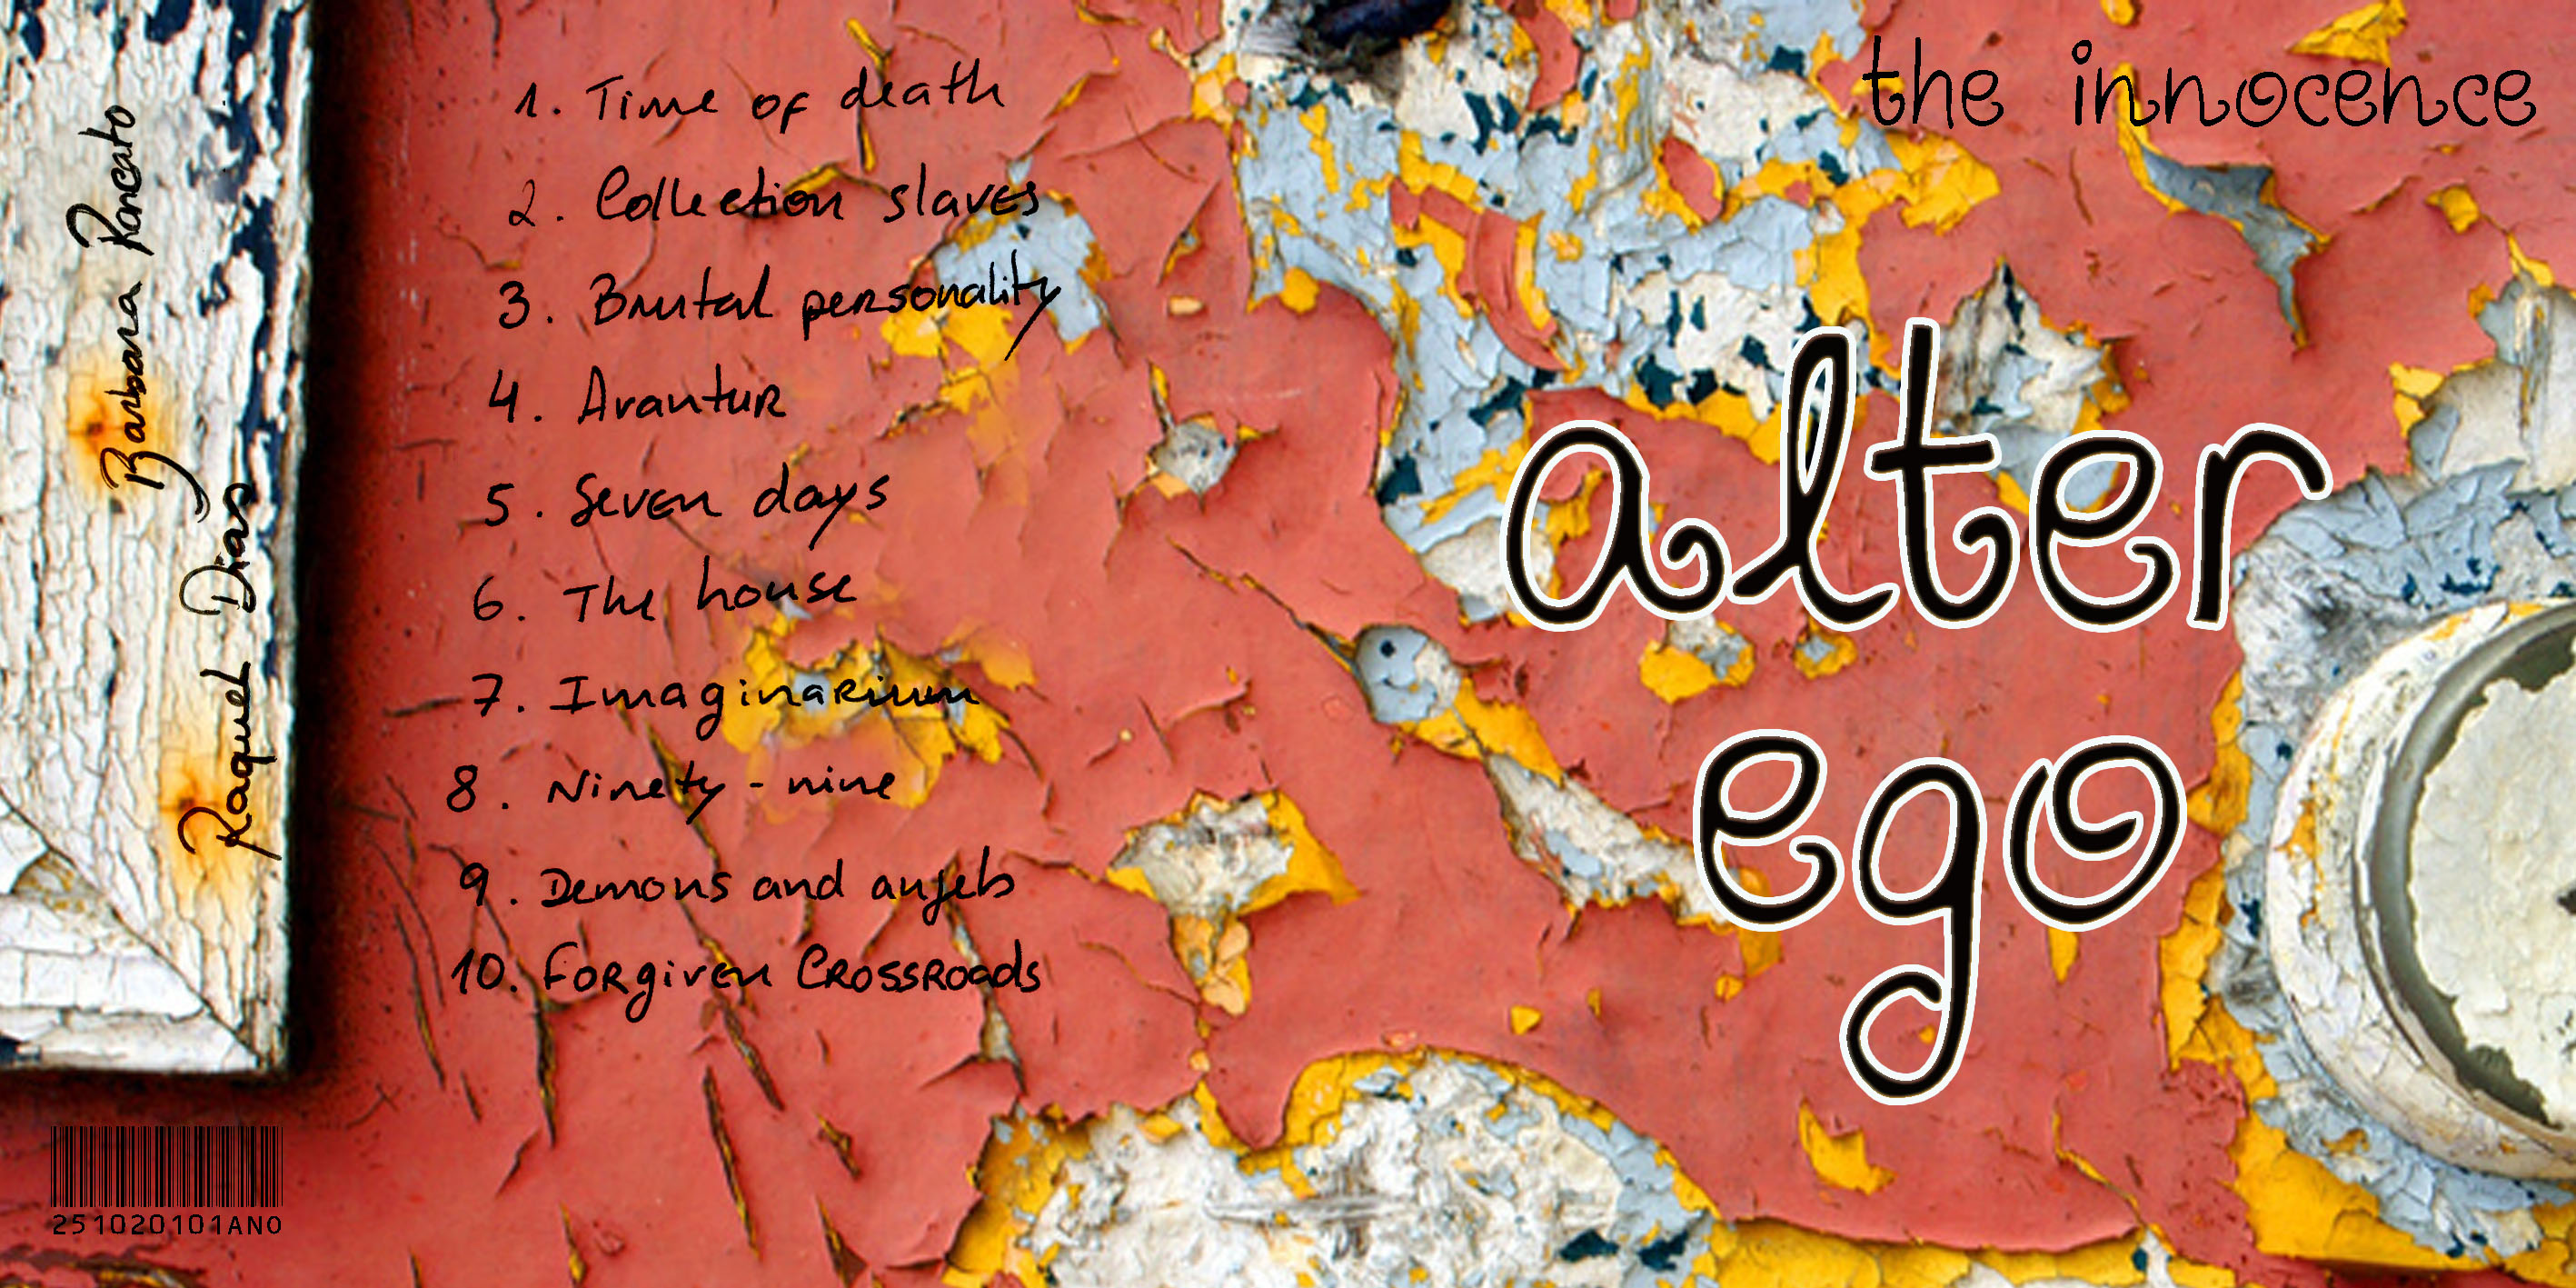 the innocence
alter
ego
1. Time of death
2. Collection slaves
3. Brutal personality
4. Avantur
5. Seven days
6. The house
7. Imaginarium
8. Ninety-nine
9. Demons and anjels
10. Forgiven Crossroads
Barbara Roncato
Raquel Dias
251020101ANO